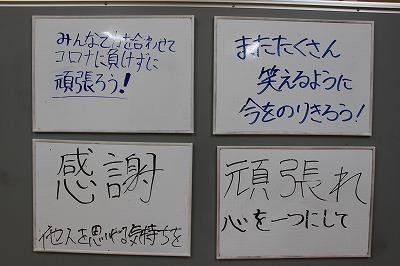 みんなで力を合わせて
コロナに負けずに
頑張ろう!
またたくさん
笑えるように
今をのりきろう!
感謝
他人を思いやる気持ちを
頑張れ
心を一つにして